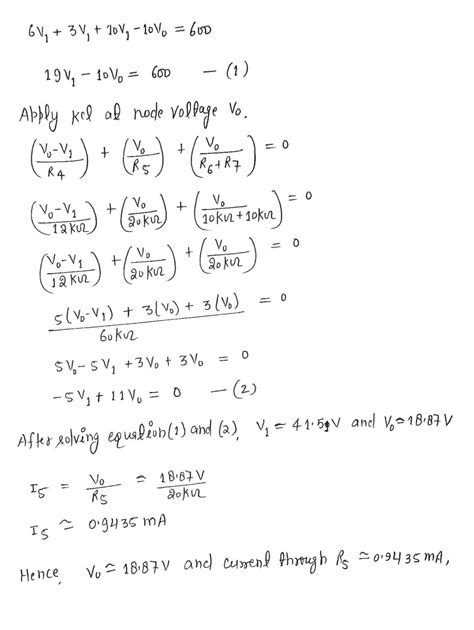 6V₁ + 3V₁ + 10V₁ - 10V₀ = 600
19V₁ - 10V₀ = 600 — (1)
Apply kcl at node voltage V₀.
((V₀-V₁)/R4) + (V₀/R5) + (V₀/(R6+R7)) = 0
((V₀-V₁)/12kΩ) + (V₀/20kΩ) + (V₀/(10kΩ+10kΩ)) = 0
((V₀-V₁)/12kΩ) + (V₀/20kΩ) + (V₀/20kΩ) = 0
(5(V₀-V₁) + 3(V₀) + 3(V₀))/60kΩ = 0
5V₀-5V₁ +3V₀ + 3V₀ = 0
-5V₁ + 11V₀ = 0 — (2)
After solving equation(1) and (2), V₁ = 41.51V and V₀≃18.87V
I5 = V₀/R5 ≃ 18.87V/20kΩ
I5 ≃ 0.9435 mA
Hence, V₀ ≃ 18.87V and current through R5 ≃ 0.9435mA,